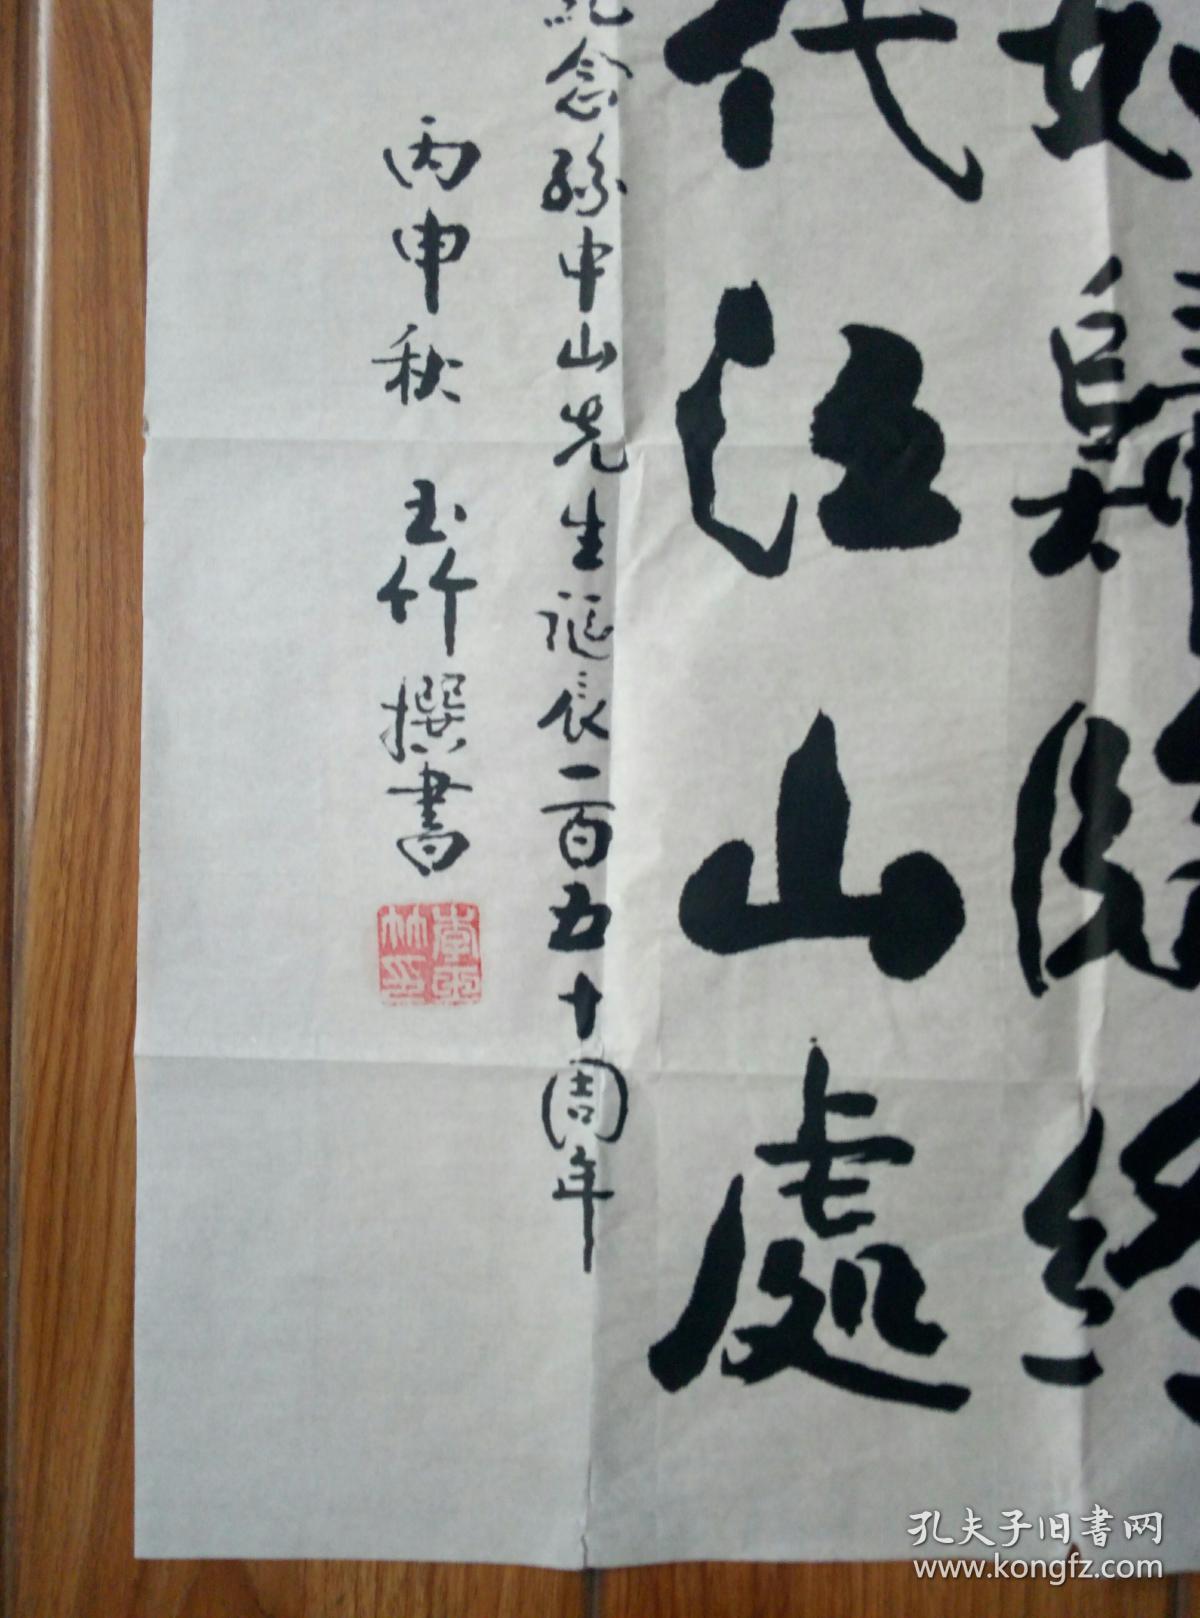 代江山處
紀念孫中山先生誕辰一百五十周年
丙申秋 玉竹撰書
李玉竹印
孔夫子旧書网
www.kongfz.com